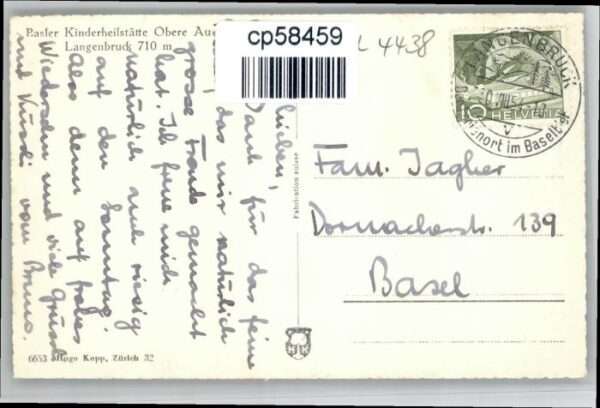 Basler Kinderheilstätte Obere Au
Langenbruck 710 m
cp58459
L 4438
LANGENBRUCK
HELVETIA
10
ort im Baselbiet
lieben,
Dank, für das feine
das mir natürlich
grosse Freude gemacht
hat. Ich freue mich
natürlich auch riesig
auf den Sonntag.
Also denn auf frohes
Wiedersehn und viele Grüsse
und Küssli vom Bruno.
Fabrication suisse
Fam. Jagher
Dornacherstr. 139
Basel
6653 Hugo Kopp, Zürich 32